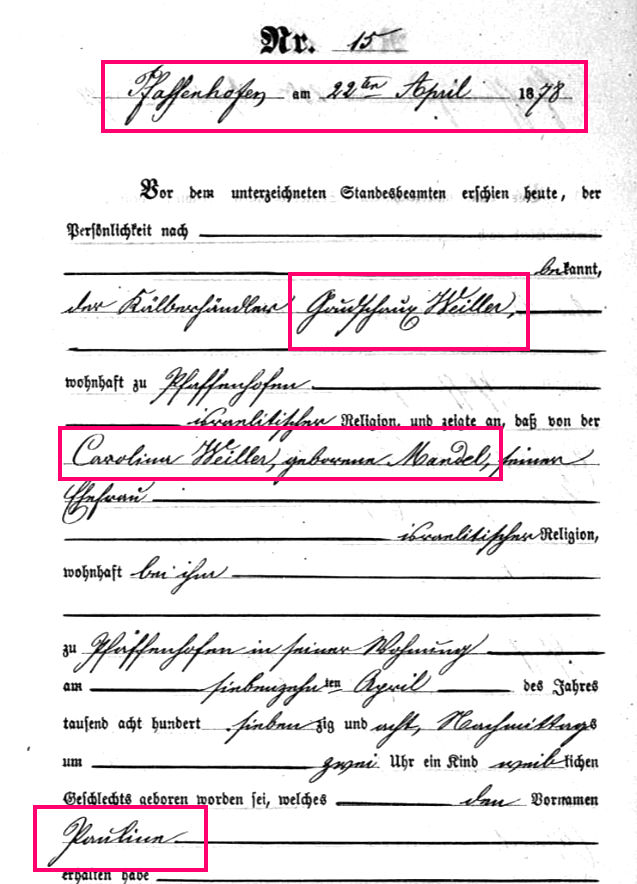 Nr. 15
Pfaffenhofen am 22ten April 1878
Vor dem unterzeichneten Standesbeamten erschien heute, der
Persönlichkeit nach
bekannt,
der Kälberhändler Goudschaux Weiller,
wohnhaft zu Pfaffenhofen
israelitischer Religion, und zeigte an, daß von der
Carolina Weiller, geborene Mandel, seiner
Ehefrau
israelitischer Religion,
wohnhaft bei ihm
zu Pfaffenhofen in seiner Wohnung
am siebenzehnten April des Jahres
tausend acht hundert siebenzig und acht, Nachmittags
um zwei Uhr ein Kind weiblichen
Geschlechts geboren worden sei, welches den Vornamen
Pauline
erhalten habe